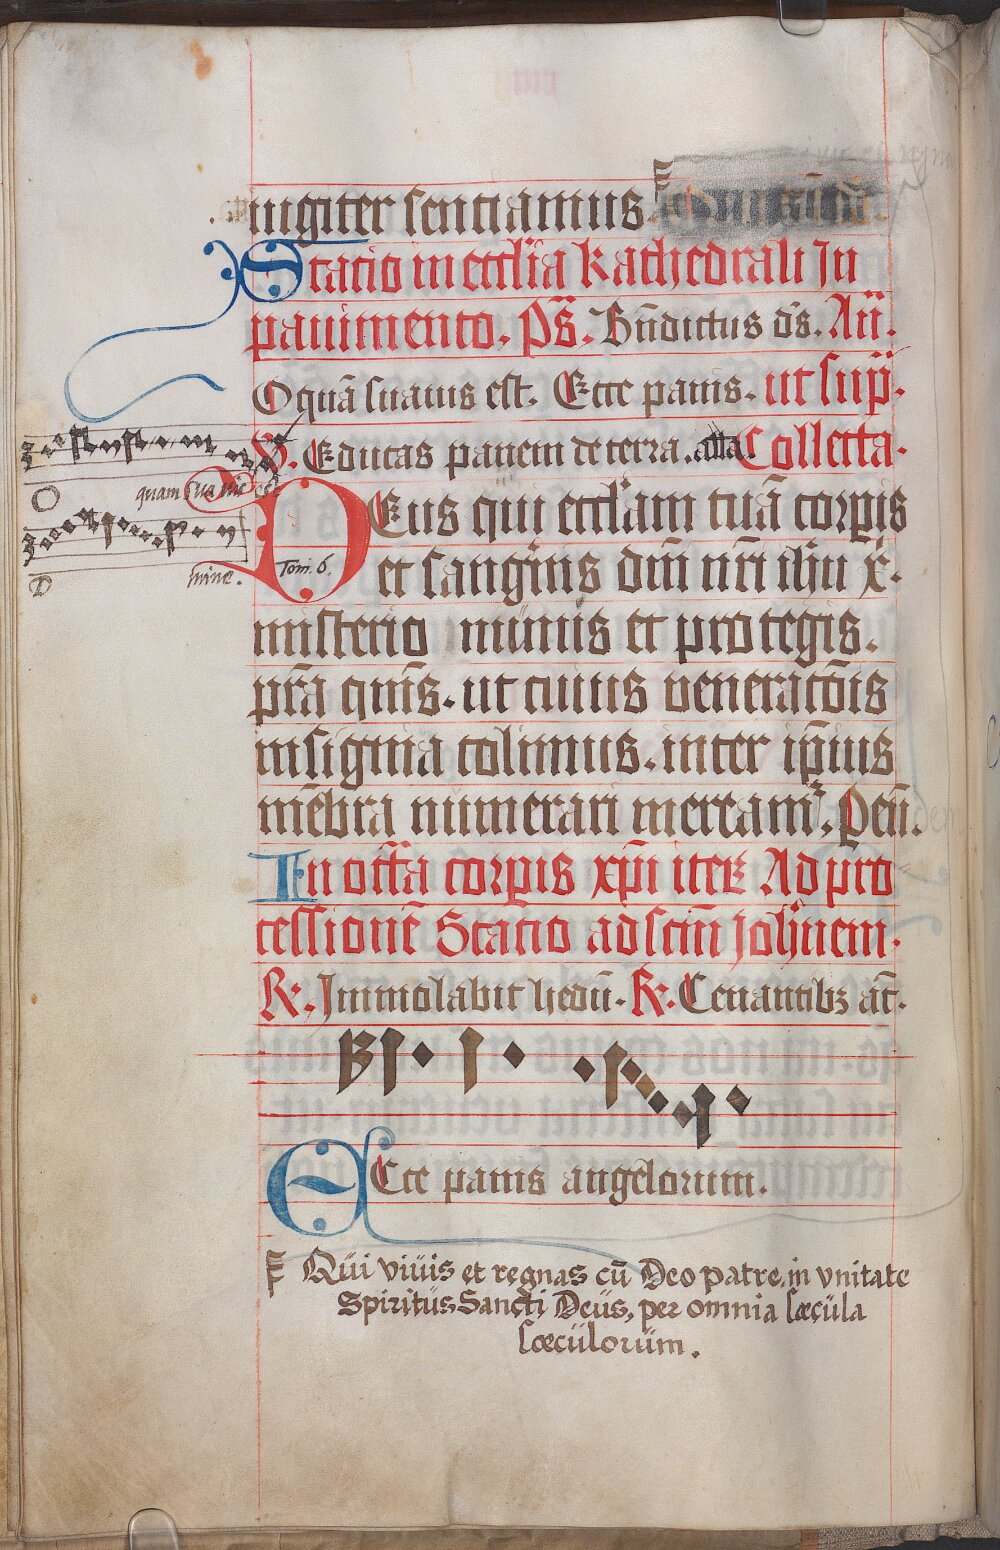 iugiter sentiamus
Statio in eccl̃ia kathedrali Ju
pauimento. Ps̃. Bñdictus dñs. Añ.
O quã suauis est. Ecce panis. ut sup̃.
V. Educas panem de terra. alla. Collecta.
quam sua vis est
O
DEus qui eccl̃iam tuã corp̱is
Tom. 6.
D
mine.
et sanguĩs dñi nr̃i ihu x̃.
misterio munis et protegis.
pr̃a qm̃s. ut cuius veneratõis
insignia colimus. inter ip̃ius
mẽbra numerari mereamʳ. Pen̄.
In octãa corp̱is xp̃i iteꝝ Ad pro
cessionẽ Statio ad sctm̃ Johñem.
R. Immolabit hedũ. R. Cenantibꝫ at̃.
Ecce panis angelorum.
Qüi viüis et regnas cũ Deo patre, in vnitate
Spiritüs Sancti Deüs, per omnia sæcüla
sæcülorüm.